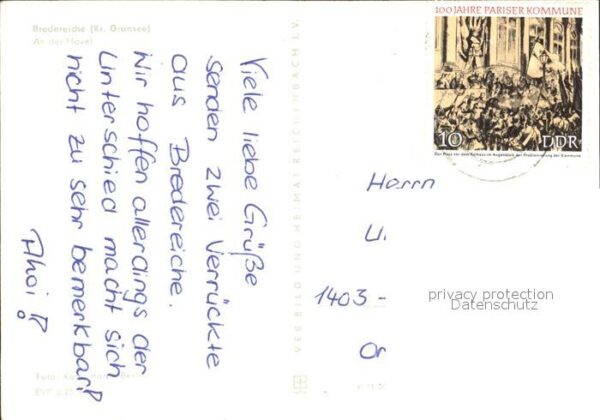 Bredereiche (Kr. Gransee)
An der Havel
Viele liebe Grüße
senden zwei Verrückte
aus Bredereiche.
Wir hoffen allerdings der
Unterschied macht sich
nicht zu sehr bemerkbar!
Ahoi!
VEB BILD UND HEIMAT REICHENBACH I. V.
100 JAHRE PARISER KOMMUNE
10 DDR
Der Platz vor dem Rathaus im Augenblick der Proklamierung der Kommune
Herrn
U.
1403 -
Or
privacy protection
Datenschutz
Foto: